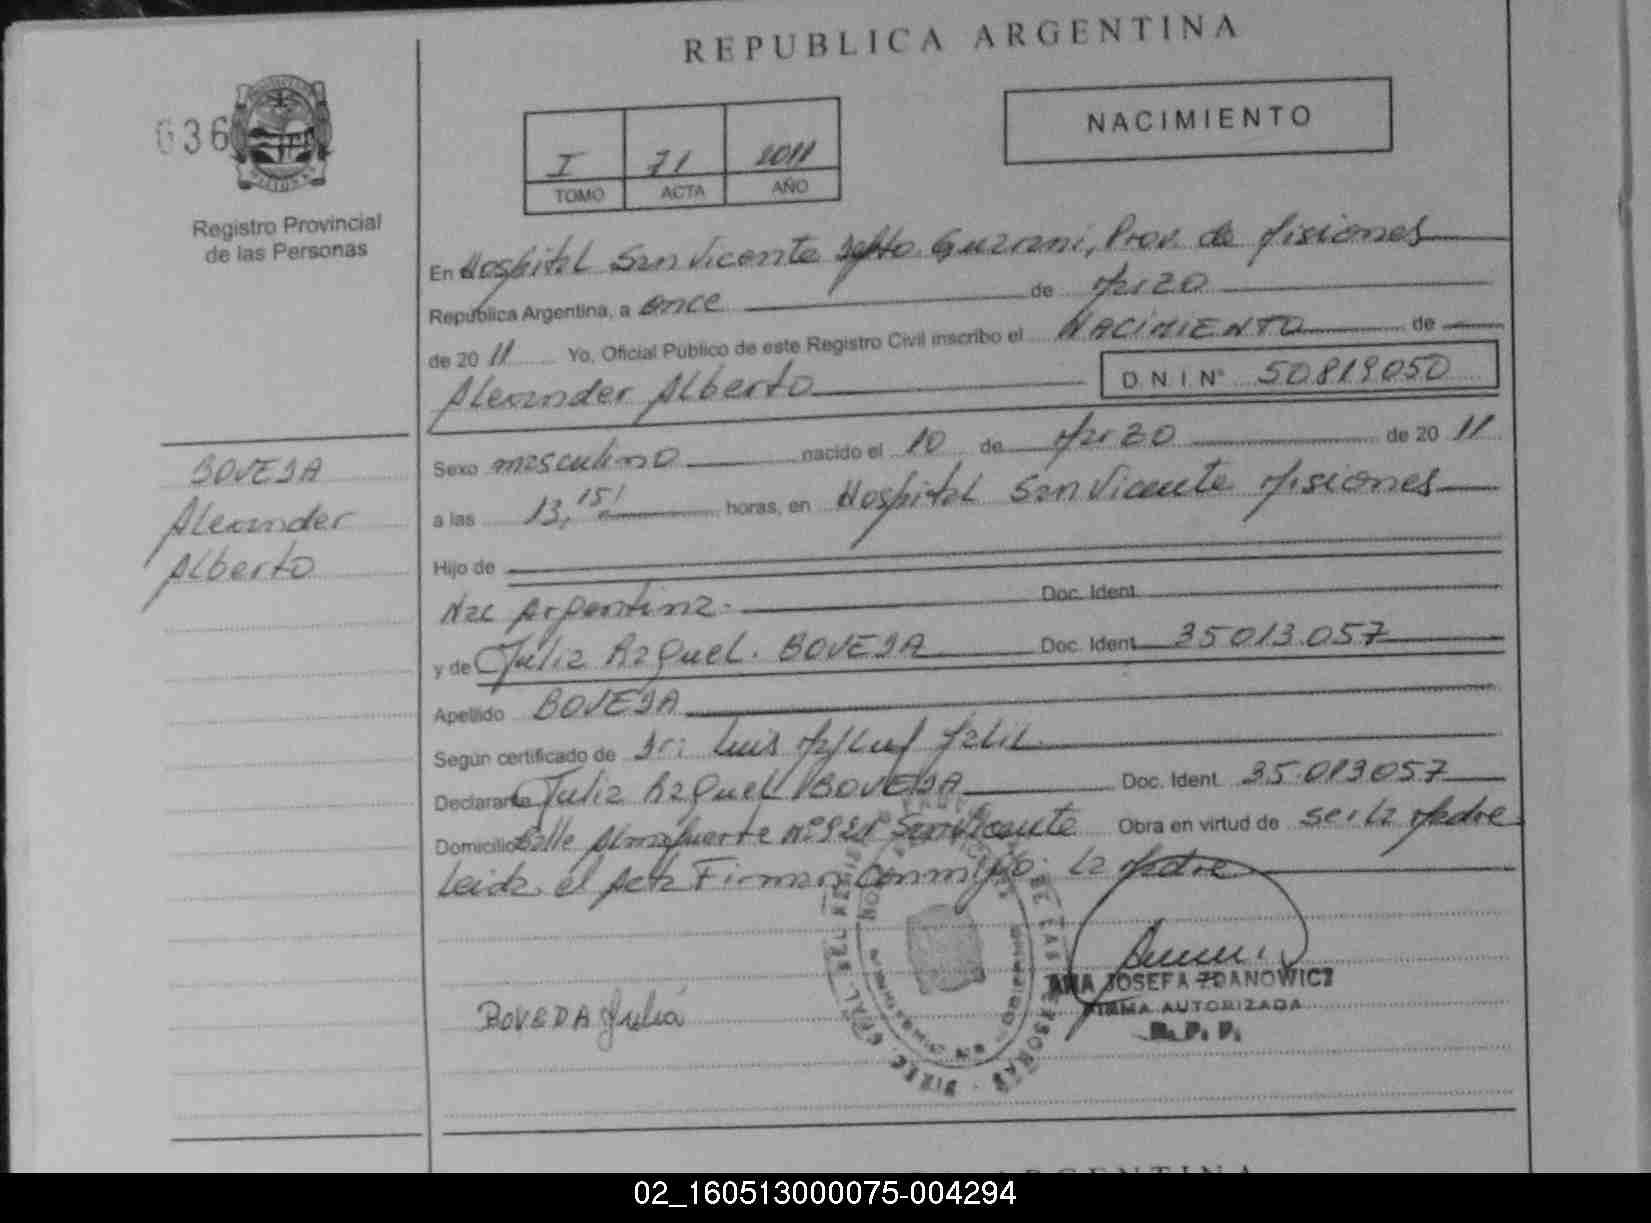 REPUBLICA ARGENTINA
036
NACIMIENTO
I 71 2011
TOMO ACTA AÑO
Registro Provincial
de las Personas
En Hospital San Vicente Dpto. Guarani, Prov. de Misiones
República Argentina, a once de Marzo
de 2011 Yo, Oficial Público de este Registro Civil inscribo el NACIMIENTO de
Alexander Alberto D N I Nº 50819050
Sexo masculino nacido el 10 de Marzo de 2011
a las 13,15' horas, en Hospital San Vicente Misiones
BOVEDA
Alexander
Alberto
Hijo de
Nac Argentina. Doc. Ident.
y de Julia Raquel. BOVEDA Doc. Ident. 35013.057
Apellido BOVEDA
Según certificado de Dr: Luis
Declarante Julia Raquel BOVEDA Doc. Ident. 35.013057
Domicilio Calle Almafuerte Nº 921 San Vicente Obra en virtud de ser la Madre
Leida el Acta Firman conmigo: la Madre
BOVEDA Julia
ANA JOSEFA ZDANOWICZ
FIRMA AUTORIZADA
R. P. P.
ARGENTINA
02_160513000075-004294